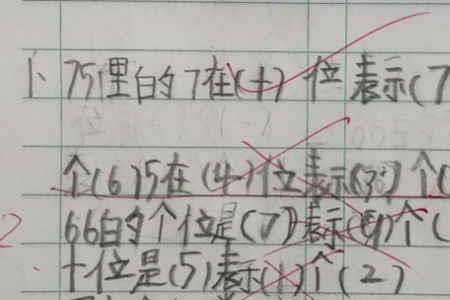 1、75里的7在(十)位表示(7
个(6)5在(4)位表示(3)个(
66的个位是(7)表示(9)个(
2、十位是(5)表示(1)个(2)